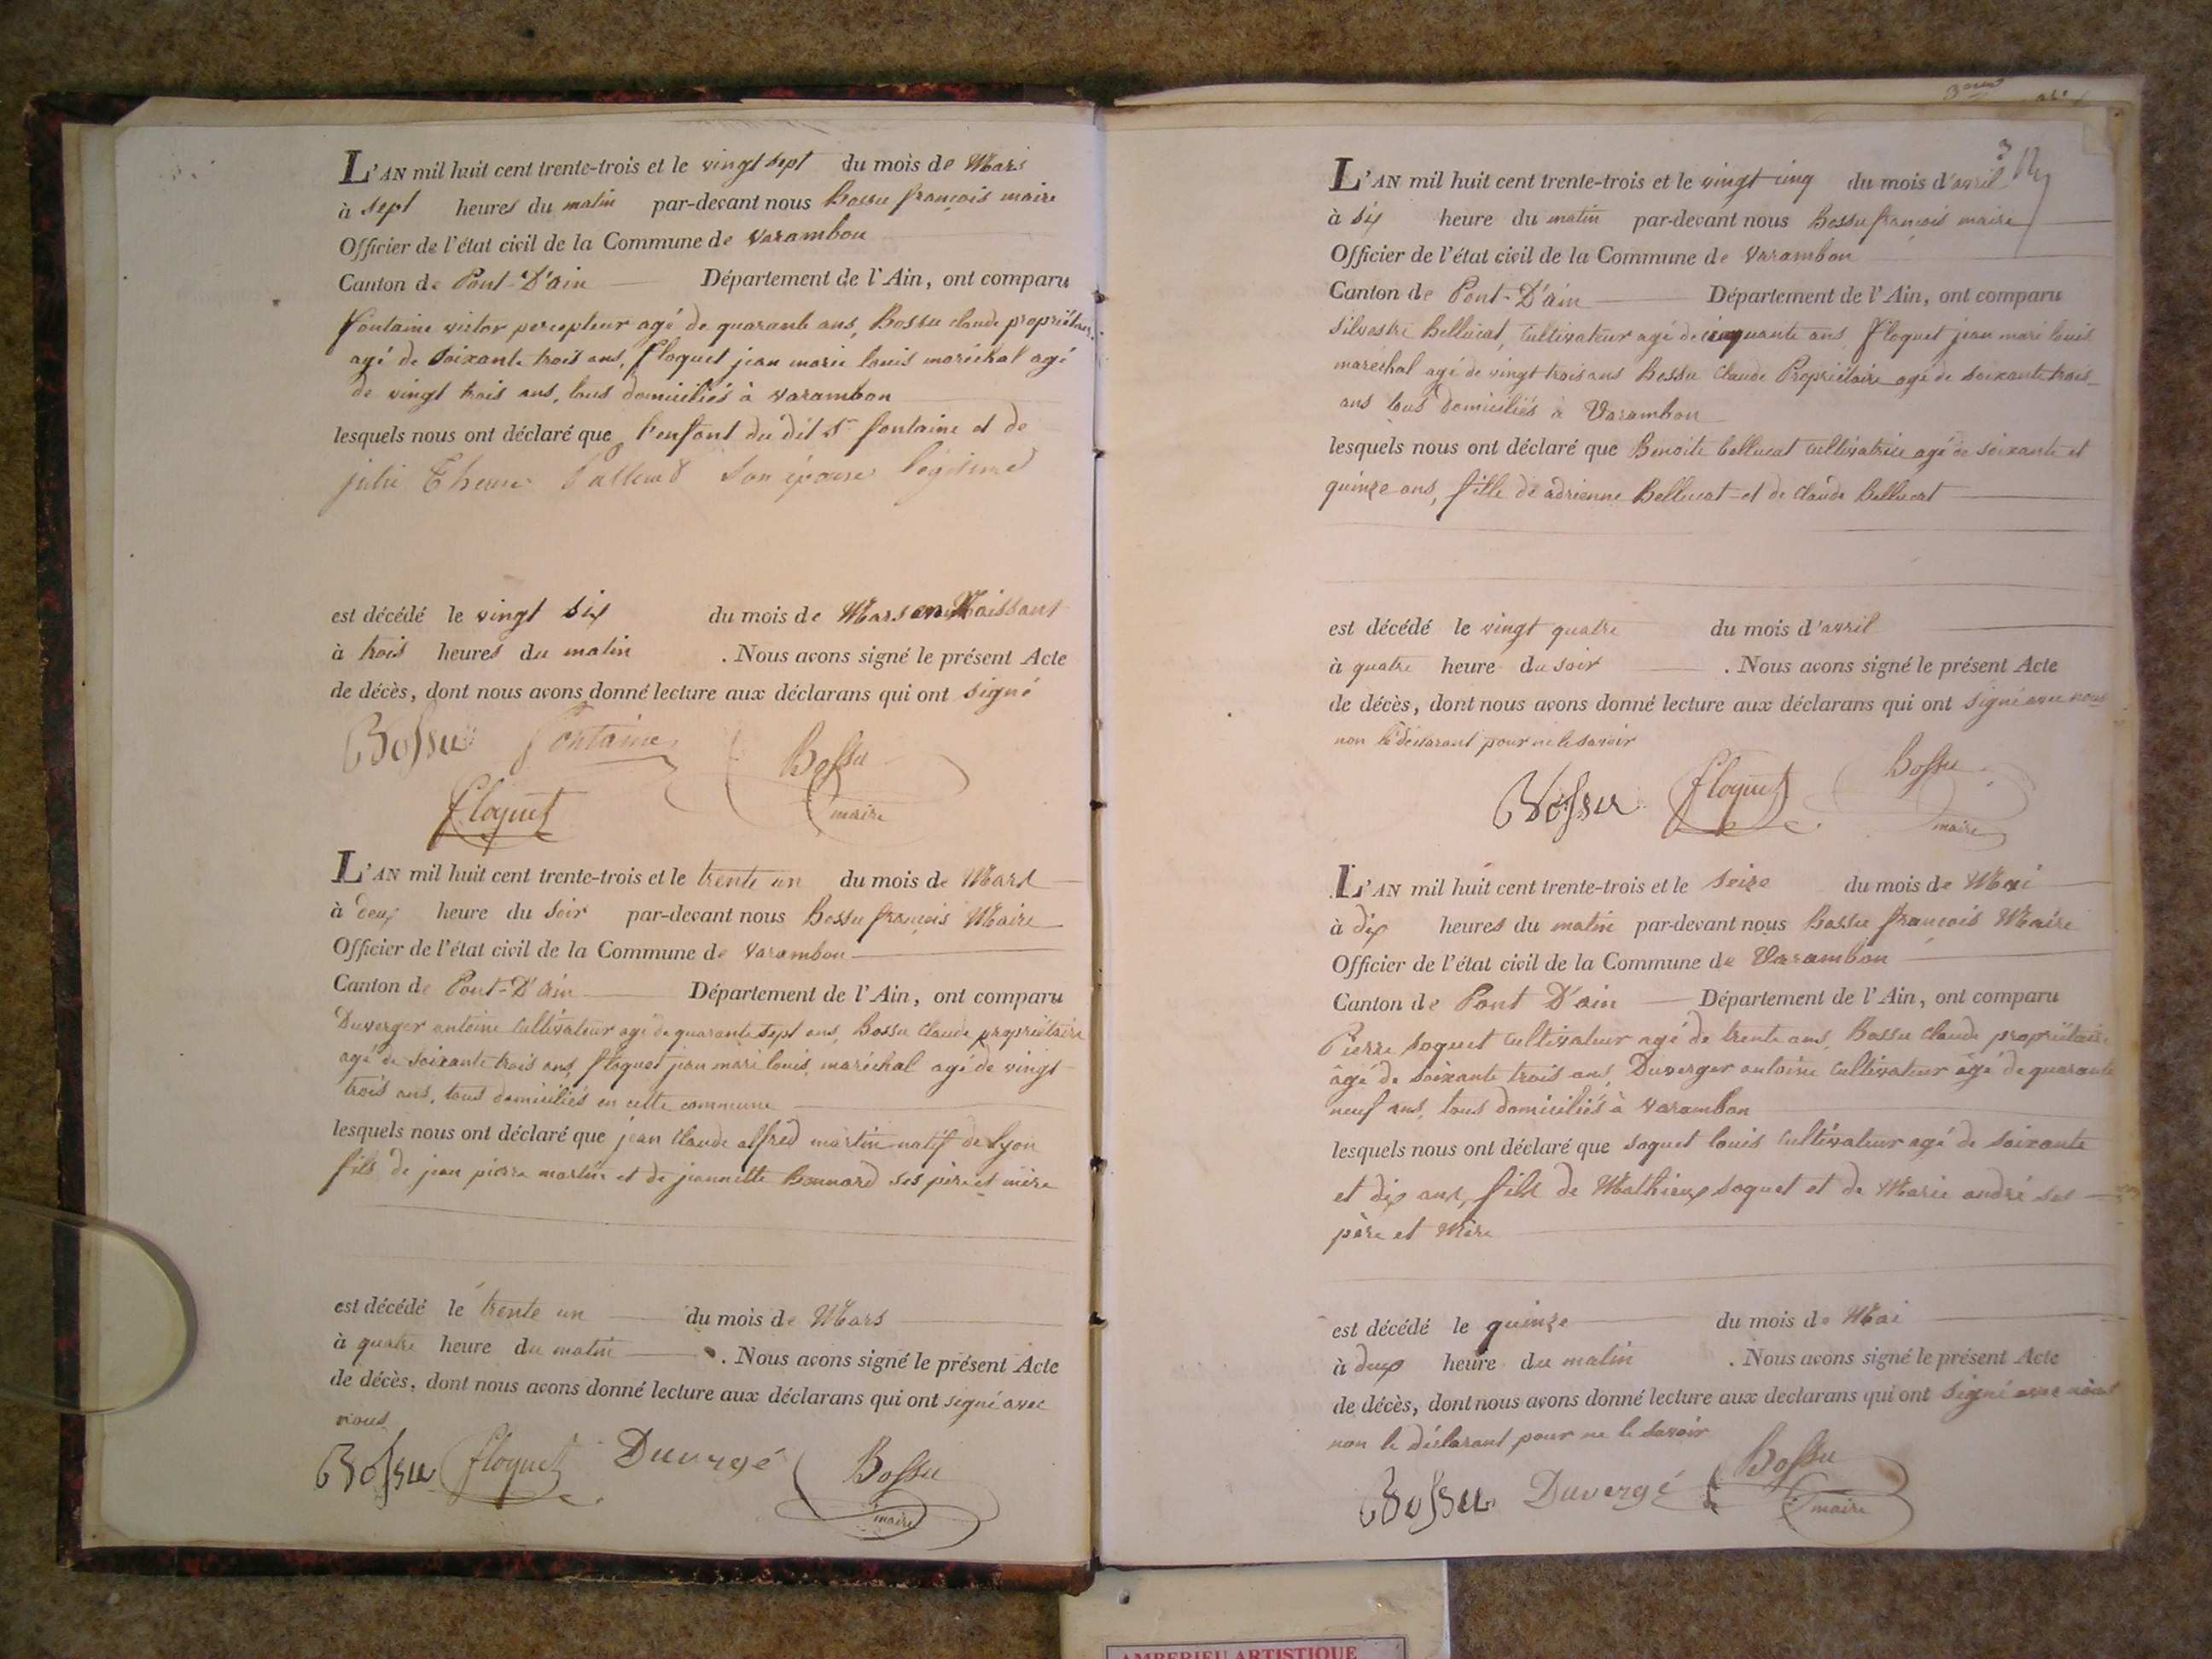 L'AN mil huit cent trente-trois et le vingt sept du mois de Mars
à sept heures du matin par-devant nous Bossu françois maire
Officier de l'état civil de la Commune de Varambon
Canton de Pont-D'ain Département de l'Ain, ont comparu
fontaine victor percepteur agé de quarante ans, Bossu claude propriétaire
agé de Soixante trois ans, floquet jean marie louis maréchal agé
de vingt trois ans, tous domiciliés à varambon
lesquels nous ont déclaré que l'enfant du dit Sr fontaine et de
julie son épouse légitime
est décédé le vingt six du mois de Mars en Naissant
à trois heures du matin . Nous avons signé le présent Acte
de décès, dont nous avons donné lecture aux déclarans qui ont signé
Bossu fontaine Bossu
floquet maire
L'AN mil huit cent trente-trois et le trente un du mois de Mars
à deux heure du soir par-devant nous Bossu françois Maire
Officier de l'état civil de la Commune de Varambon
Canton de Pont-D'Ain Département de l'Ain, ont comparu
Duverger antoine cultivateur agé de quarante sept ans, Bossu Claude propriétaire
agé de soixante trois ans, floquet jean mari louis, maréchal agé de vingt
trois ans, tous domiciliés en cette commune
lesquels nous ont déclaré que jean claude alfred martin natif de Lyon
fils de jean pierre martin et de jeannette Bonnard ses père et mère
est décédé le trente un du mois de Mars
à quatre heure du matin . Nous avons signé le présent Acte
de décès, dont nous avons donné lecture aux déclarans qui ont signé avec
nous
Bossu floquet Duvergé Bossu
maire
3
L'AN mil huit cent trente-trois et le vingt cinq du mois d'avril
à six heure du matin par-devant nous Bossu françois maire
Officier de l'état civil de la Commune de Varambon
Canton de Pont-D'ain Département de l'Ain, ont comparu
Silvestre Bellucat, cultivateur agé de cinquante ans, floquet jean mari louis
marechal agé de vingt trois ans Bossu Claude Propriétaire agé de soixante trois
ans tous domiciliés à Varambon
lesquels nous ont déclaré que Benoite bellucat cultivatrice agé de soixante et
quinze ans, fille de adrienne Bellucat et de claude Bellucat
est décédé le vingt quatre du mois d'avril
à quatre heure du soir . Nous avons signé le présent Acte
de décès, dont nous avons donné lecture aux déclarans qui ont signé avec nous
non le déclarant pour ne le savoir
Bossu floquet Bossu
maire
L'AN mil huit cent trente-trois et le seize du mois de Mai
à dix heures du matin par-devant nous Bossu françois Maire
Officier de l'état civil de la Commune de Varambon
Canton de Pont D'ain Département de l'Ain, ont comparu
Pierre soquet cultivateur agé de trente ans, Bossu claude propriétaire
âgé de soixante trois ans, Duverger antoine cultivateur âgé de quarante
neuf ans, tous domiciliés à varambon
lesquels nous ont déclaré que soquet louis cultivateur agé de soixante
et dix ans, fils de Mathieu soquet et de Marie andré ses
père et Mère
est décédé le quinze du mois de Mai
à deux heure du matin . Nous avons signé le présent Acte
de décès, dont nous avons donné lecture aux declarans qui ont signé avec nous
non le déclarant pour ne le savoir
Bossu Duvergé Bossu
maire
AMBERIEU ARTISTIQUE